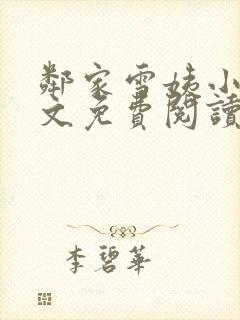 鄰家雪姨小
文免費閱讀
李碧華